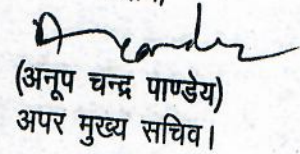 (अनूप चन्द्र पाण्डेय)
अपर मुख्य सचिव।